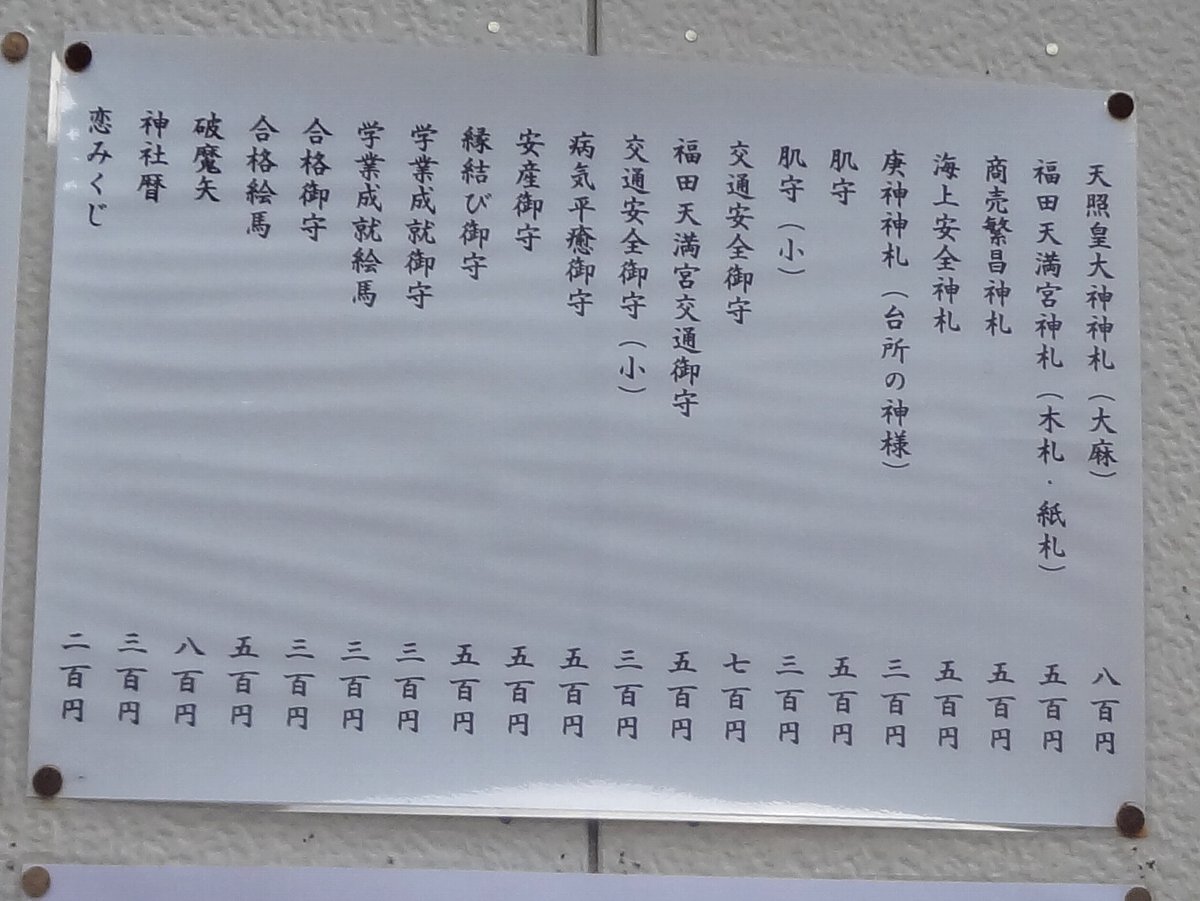 天照皇大神神札（大麻）　八百円
福田天満宮神札（木札・紙札）　五百円
商売繁昌神札　五百円
海上安全神札　五百円
庚神神札（台所の神様）　三百円
肌守　五百円
肌守（小）　三百円
交通安全御守　七百円
福田天満宮交通御守　五百円
交通安全御守（小）　三百円
病気平癒御守　五百円
安産御守　五百円
縁結び御守　五百円
学業成就御守　三百円
学業成就絵馬　三百円
合格御守　三百円
合格絵馬　五百円
破魔矢　八百円
神社暦　三百円
恋みくじ　二百円